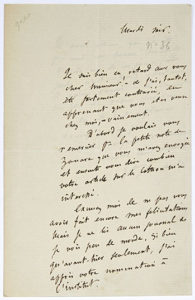 Mercredi soir.
Je suis bien en retard avec vous
cher Monsieur – et j'ai, tantôt,
été fortement contrarié, en
apprenant que vous étiez venu
chez moi, vainement.
D'abord je voulais vous
remercier de la petite note de
que vous m'avez envoyée
et ensuite vous dire combien
votre article sur m'a
intéressé.
Comme moi de ne pas vous
avoir fait encore mes félicitations
Mais je ne lis aucun journal &
je vois peu de monde, si bien
qu'avant-hier seulement, j'ai
appris votre nomination à
l'institut.